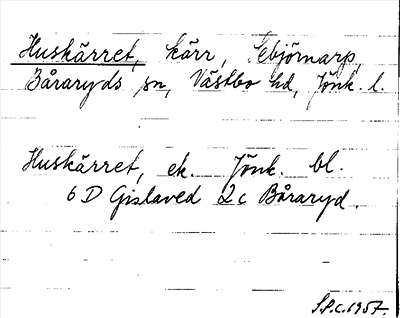 Huskärret, kärr, Sebjörnarp,
Båraryds sn, Västbo hd, Jönk. l.
Huskärret, ek. Jönk. bl.
6 D Gislaved 2 c Båraryd.
S.P.C. 1957.